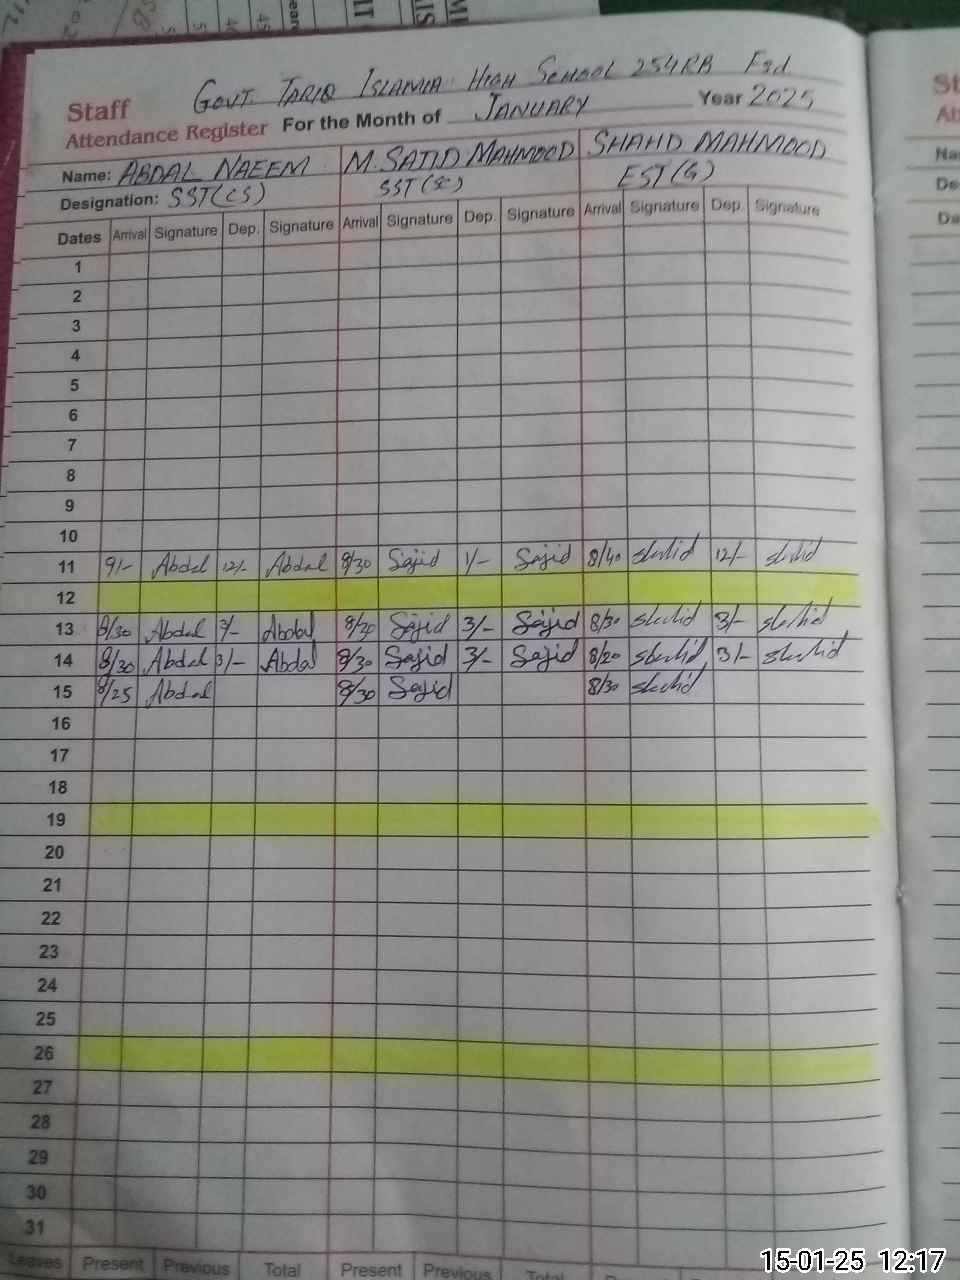 GOVT. TARIQ ISLAMIA HIGH SCHOOL 254RB Fsd
Staff
Attendance Register For the Month of JANUARY Year 2025
Name: ABDAL NAEEM M. SAJID MAHMOOD SHAHID MAHMOOD
Designation: SST(CS) SST(SC) EST(G)
Dates Arrival Signature Dep. Signature Arrival Signature Dep. Signature Arrival Signature Dep. Signature
1
2
3
4
5
6
7
8
9
10
11 9/- Abdal 12/- Abdal 8/30 Sajid 1/- Sajid 8/40 shahid 12/- shahid
12
13 8/30 Abdal 3/- Abdal 8/30 Sajid 3/- Sajid 8/30 shahid 3/- shahid
14 8/30 Abdal 3/- Abdal 8/30 Sajid 3/- Sajid 8/20 shahid 3/- shahid
15 8/25 Abdal 8/30 Sajid 8/30 shahid
16
17
18
19
20
21
22
23
24
25
26
27
28
29
30
31
Leaves Present Previous Total Present Previous Total
15-01-25 12:17